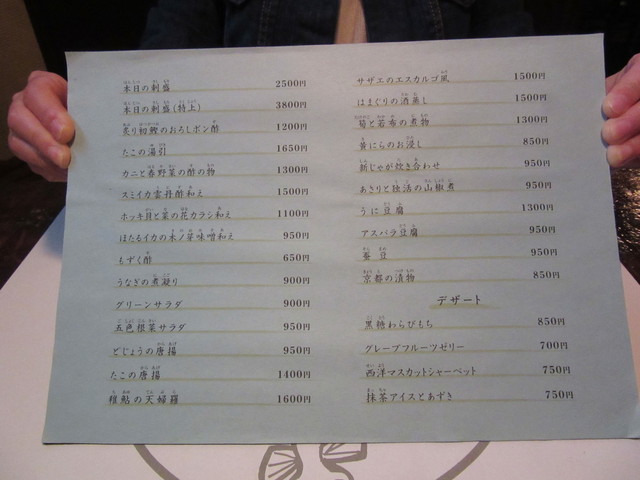 本日の刺盛 2500円
本日の刺盛(特上) 3800円
炙り初鰹のおろしポン酢 1200円
たこの湯引 1650円
カニと春野菜の酢の物 1300円
スミイカ雲丹酢和え 1500円
ホッキ貝と菜の花カラシ和え 1100円
ほたるイカの木ノ芽味噌和え 950円
もずく酢 650円
うなぎの煮凝り 900円
グリーンサラダ 900円
五色根菜サラダ 950円
どじょうの唐揚 950円
たこの唐揚 1400円
稚鮎の天婦羅 1600円
サザエのエスカルゴ風 1500円
はまぐりの酒蒸し 1500円
筍と若布の煮物 1300円
黄にらのお浸し 850円
新じゃが炊き合わせ 950円
あさりと独活の山椒煮 950円
うに豆腐 1300円
アスパラ豆腐 950円
蚕豆 950円
京都の漬物 850円
デザート
黒糖わらびもち 850円
グレープフルーツゼリー 700円
西洋マスカットシャーベット 750円
抹茶アイスとあずき 750円